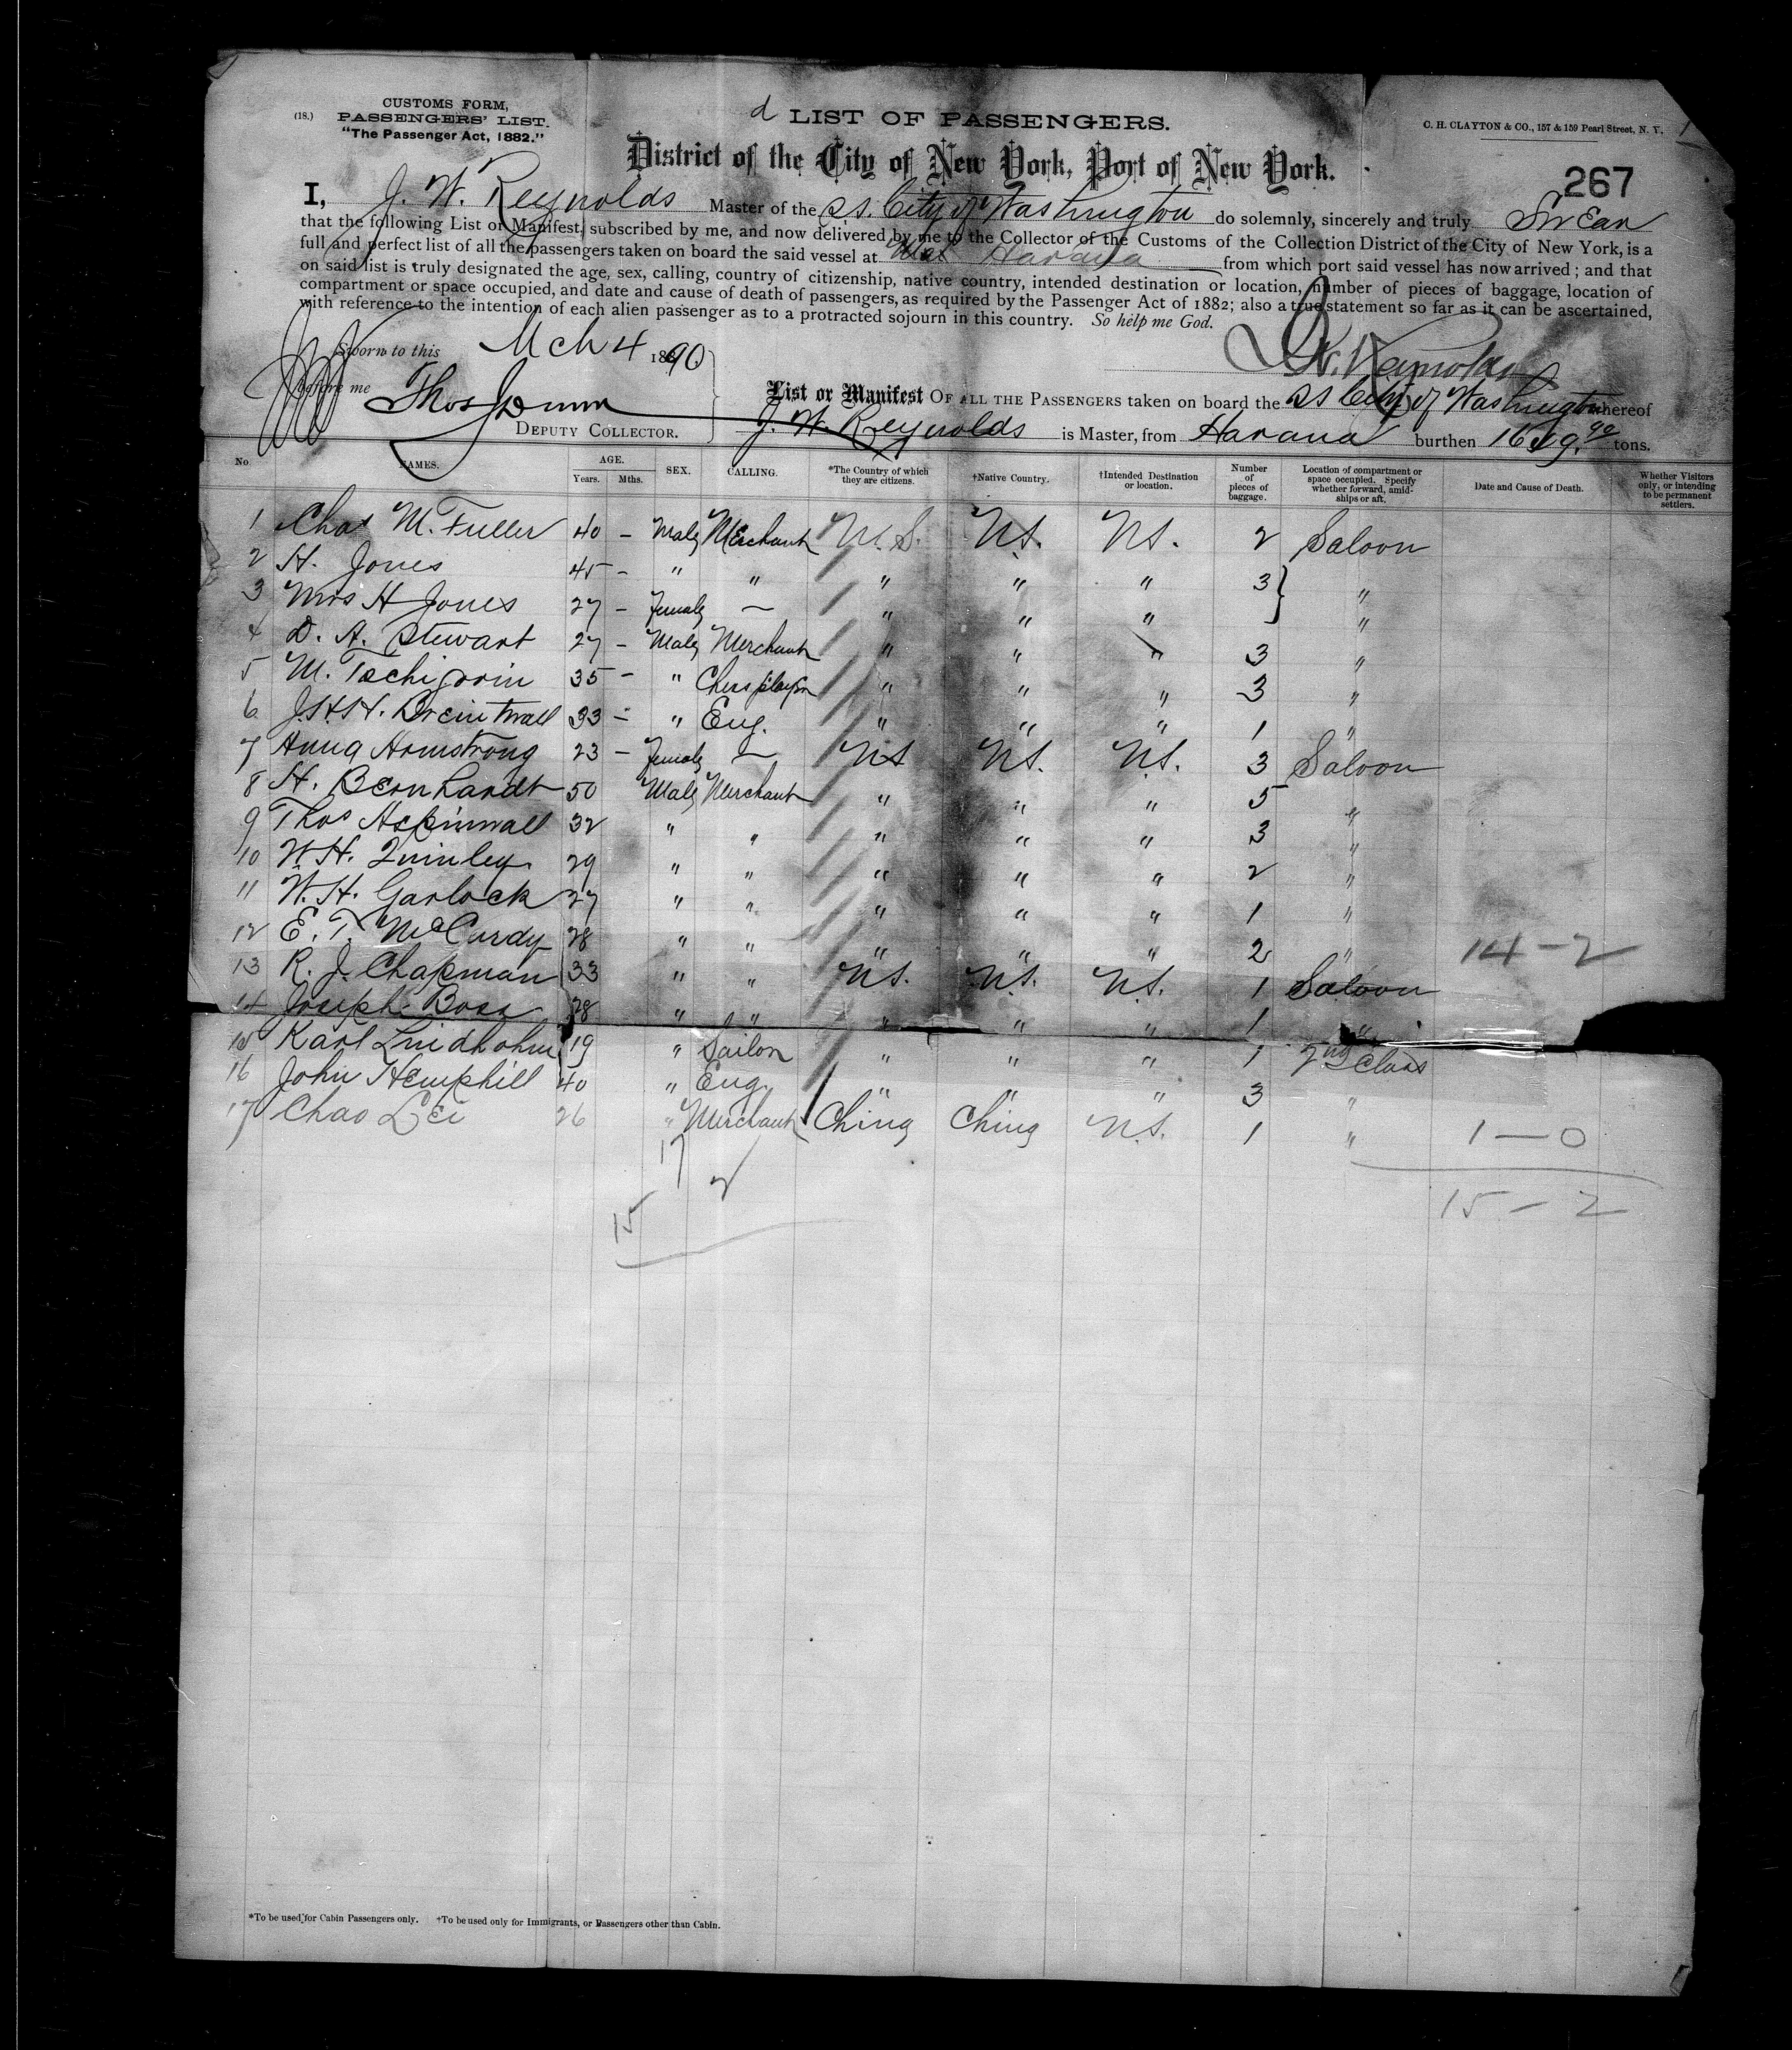 (18.)
CUSTOMS FORM,
PASSENGERS' LIST.
"The Passenger Act, 1882."
d LIST OF PASSENGERS.
C. H. CLAYTON & CO., 157 & 159 Pearl Street, N. Y.
District of the City of New York, Port of New York.
267
I, J. W. Reynolds Master of the SS. City of Washington do solemnly, sincerely and truly Swear
that the following List or Manifest, subscribed by me, and now delivered by me to the Collector of the Customs of the Collection District of the City of New York, is a
full and perfect list of all the passengers taken on board the said vessel at Havana from which port said vessel has now arrived; and that
on said list is truly designated the age, sex, calling, country of citizenship, native country, intended destination or location, number of pieces of baggage, location of
compartment or space occupied, and date and cause of death of passengers, as required by the Passenger Act of 1882; also a true statement so far as it can be ascertained,
with reference to the intention of each alien passenger as to a protracted sojourn in this country. So help me God.
Sworn to this Mch 4 1890 J. W. Reynolds
before me Thos J Dunn
DEPUTY COLLECTOR.
List or Manifest OF ALL THE PASSENGERS taken on board the SS City of Washington whereof
J. W. Reynolds is Master, from Havana burthen tons.
No. NAMES. AGE. Years. Mths. SEX. CALLING. *The Country of which they are citizens. †Native Country. †Intended Destination or location. Number of pieces of baggage. Location of compartment or space occupied. Specify whether forward, amidships or aft. Date and Cause of Death. Whether Visitors only, or intending to be permanent settlers.
1 Chas M. Fuller 40 – Male Merchant U.S. U.S. U.S. 2 Saloon
2 H. Jones 45 – " " " " " 3 "
3 Mrs H Jones 27 – Female — " " " "
4 D. A. Stewart 27 – Male Merchant " " " 3 "
5 M. Tschigorin 35 – " Chess player " " " 3 "
6 33 – " Eng. " " " 1 "
7 Anna Armstrong 23 – Female — U.S. U.S. U.S. 3 Saloon
8 H. Bernhardt 50 Male Merchant " " " 5 "
9 Thos Aspinwall 32 " " " " " 3 "
10 W. H. Quinley 29 " " " " " 2 "
11 W. H. Garlock 27 " " " " " 1 "
12 E. T. McCurdy 28 " " " " " 2 " 14 – 2
13 R. J. Chapman 33 " " U.S. U.S. U.S. 1 Saloon
14 Joseph 28 " " " " " 1 "
15 Karl Lindholm 19 " Sailor " " " 1 2nd Class
16 John Hemphill 40 " Eng. " " " 3 "
17 Chao Lei 26 " Merchant China China U.S. 1 " 1 — 0
17
15 2
15 – 2
*To be used for Cabin Passengers only. †To be used only for Immigrants, or Passengers other than Cabin.